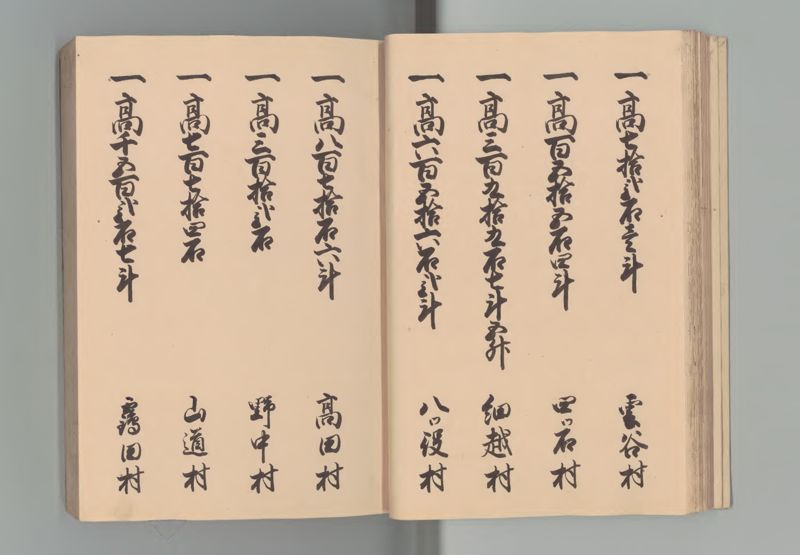 一高七拾弐石壱斗 雲谷村
一高百五拾五石四斗 四ツ石村
一高三百九拾九石七斗五升 細越村
一高六百五拾六石弐斗 八ツ役村
一高八百七拾石六斗 高田村
一高三百拾弐石 野中村
一高七百七拾四石 山道村
一高千五百弐石七斗 田村